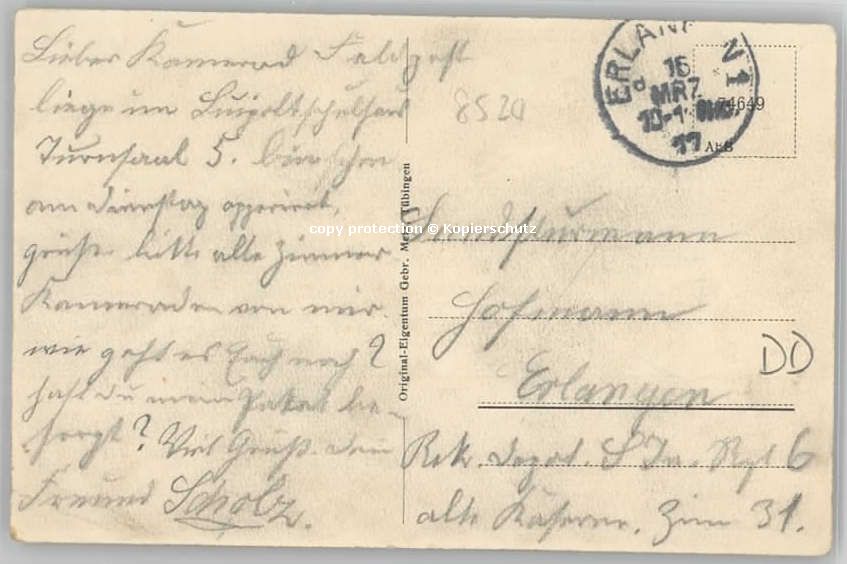 Lieber Kamerad Feldpost
liege im Luipoltschulhaus
Turnsaal 5. bin schon
am Dienstag operiert,
grüße bitte alle Zimmer
Kameraden von mir.
wie geht es Euch noch?
hast du mein Paket be-
sorgt? Viel Grüße dein
Freund Scholz.
8520
ERLANGEN 1
16
MRZ
10-1
17
74649
AkS
Original-Eigentum Gebr. Tübingen
copy protection © Kopierschutz
Landsturmann
Hofmann
DD
Erlangen
Rek. Depot. Rgt 6
alte Kaserne, Zim 31.